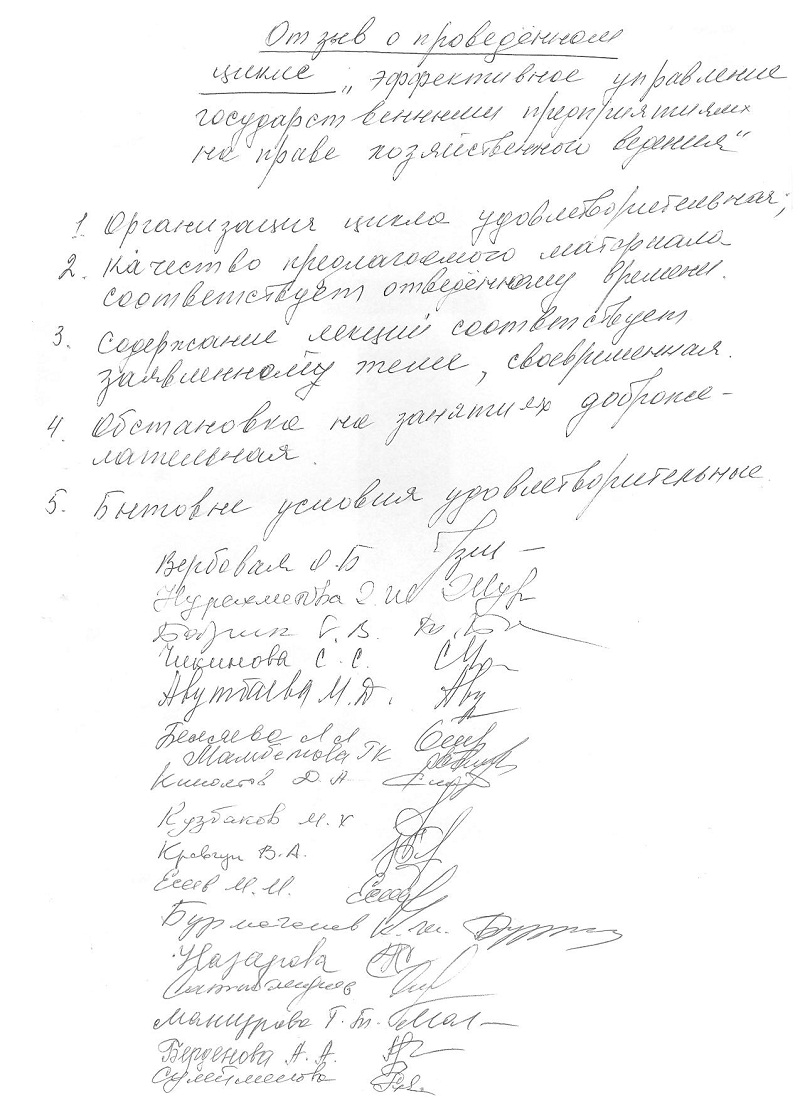 Отзыв о проведённом
цикле „эффективное управление
государственными предприятиями
на праве хозяйственного ведения“
1. Организация цикла удовлетворительная;
2. Качество предлагаемого материала
соответствует отведённому времени.
3. Содержание лекций соответствует
заявленному теме, своевременная.
4. Обстановка на занятиях доброже-
лательная.
5. Бытовые условия удовлетворительные
Вербовая О.Б
Нурахметова
Г. В.
Чикинова С. С.
Авутбаева М.Д.
Беляева Л Л
Мамбетова ГК
Д. А
Кузбаков М. Х
Кравчун В.А.
Есев М. М.
К.
Назарова
Мансурова Г. Т.
Берденова А. А.
Сулейменова